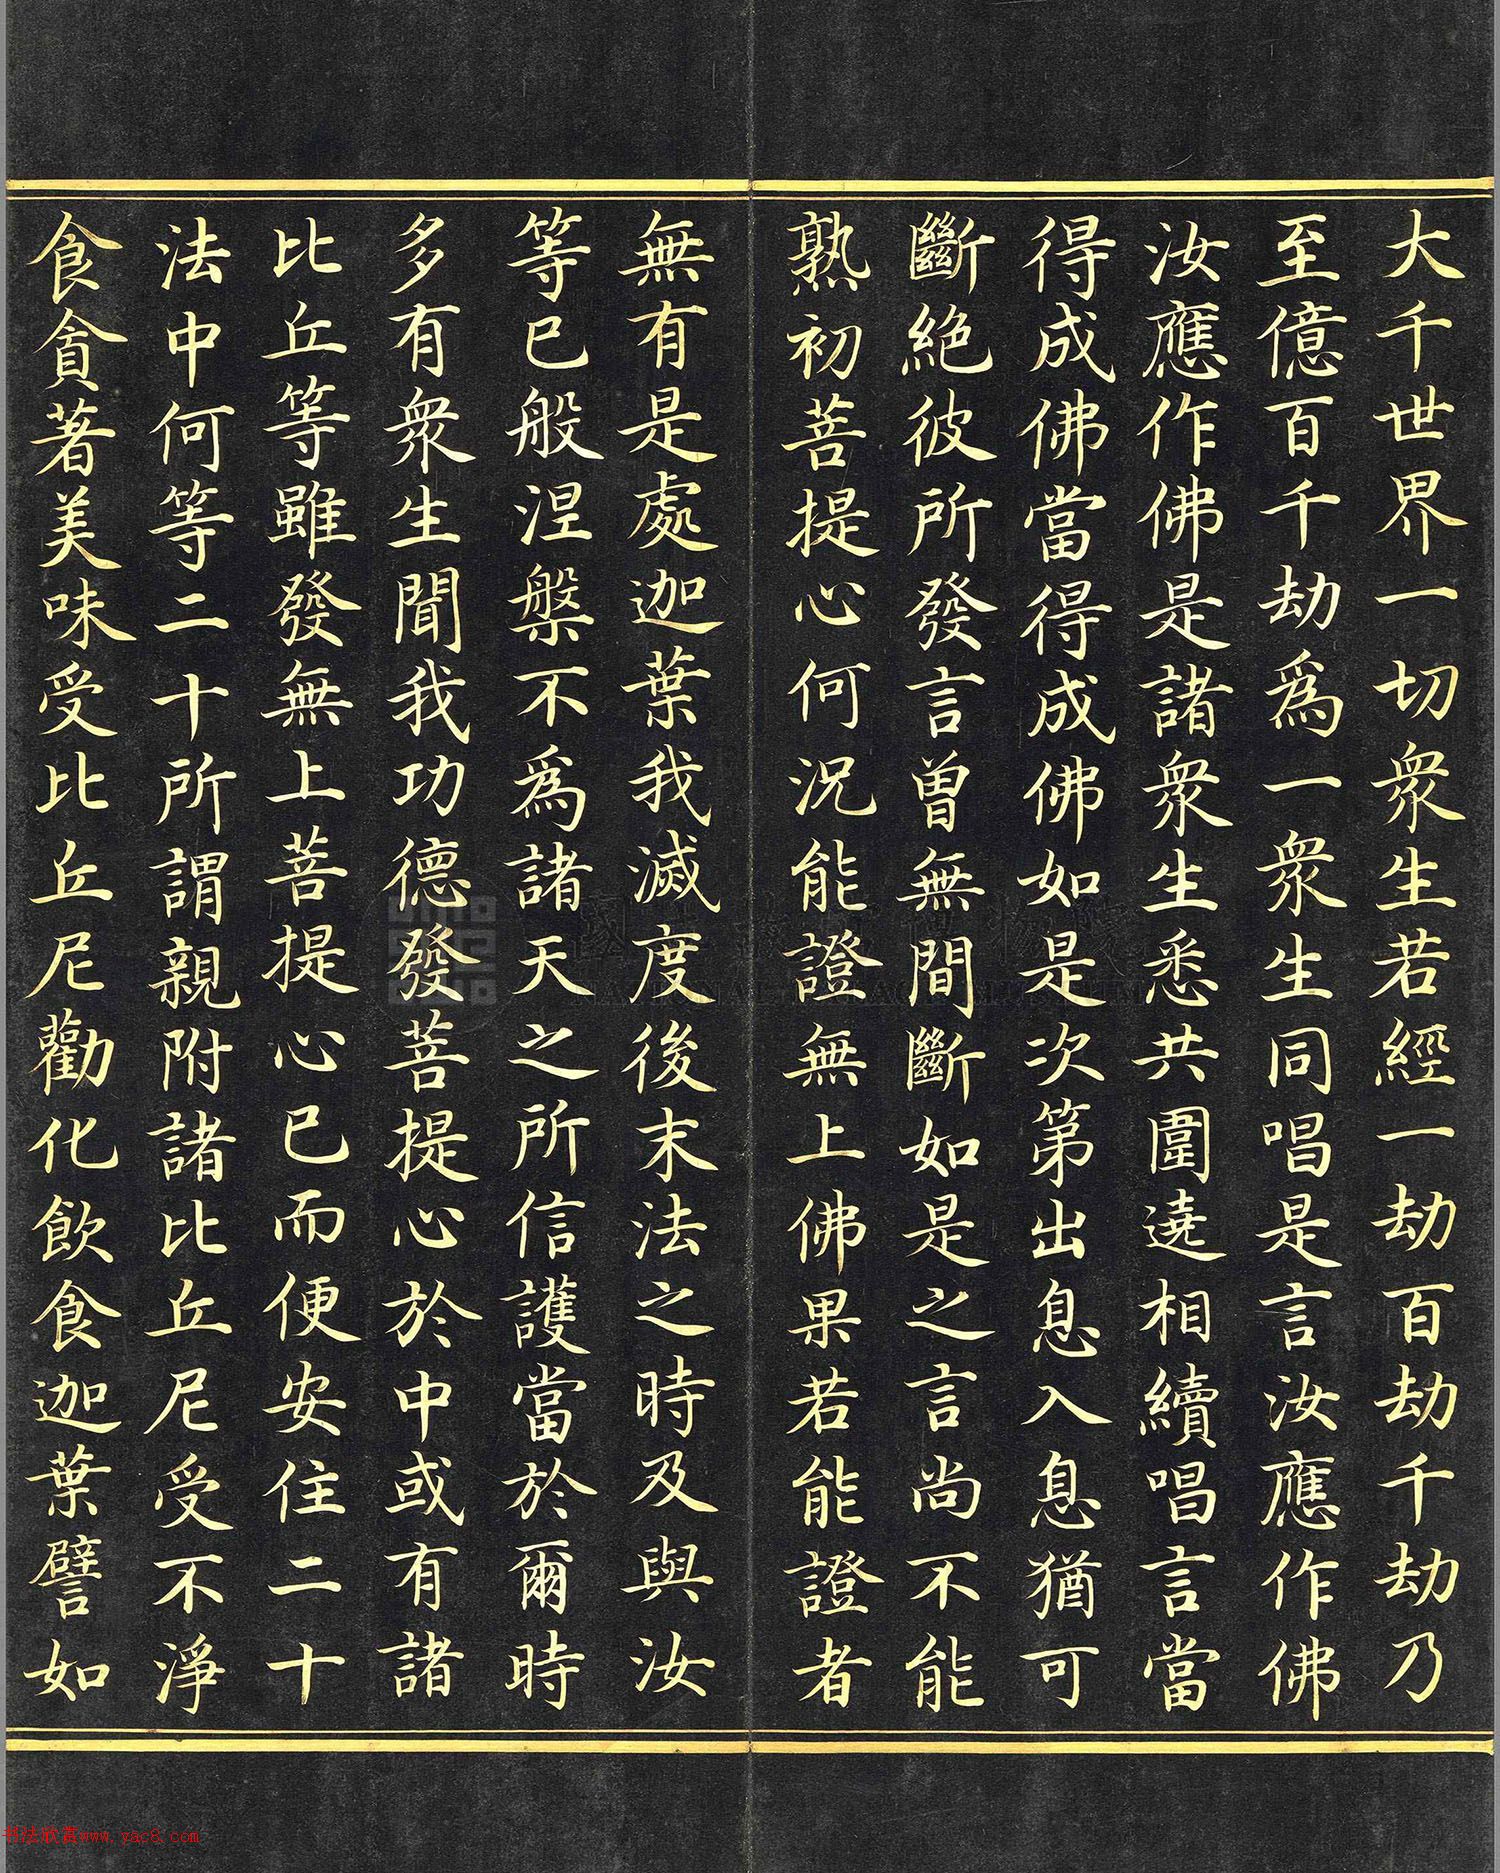 大千世界一切衆生若經一劫百劫千劫乃
至億百千劫爲一衆生同唱是言汝應作佛
汝應作佛是諸衆生悉共圍遶相續唱言當
得成佛當得成佛如是次第出息入息猶可
斷絶彼所發言曾無間斷如是之言尚不能
熟初菩提心何況能證無上佛果若能證者
無有是處迦葉我滅度後末法之時及與汝
等已般涅槃不爲諸天之所信護當於爾時
多有衆生聞我功德發菩提心於中或有諸
比丘等雖發無上菩提心已而便安住二十
法中何等二十所謂親附諸比丘尼受不淨
食貪著美味受比丘尼勸化飲食迦葉譬如
NATIONAL PALACE MUSEUM
书法欣赏www.yac8.com